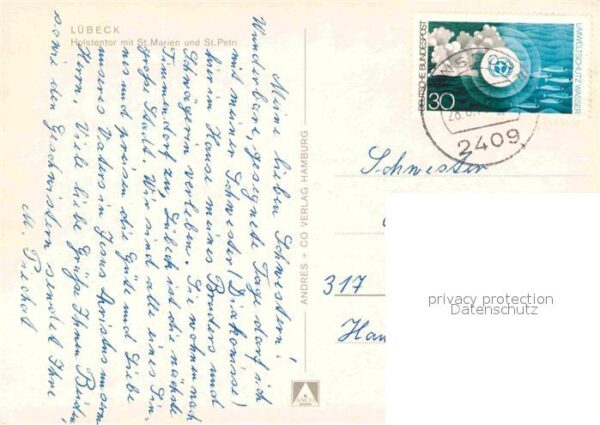 LÜBECK
Holstentor mit St. Marien und St. Petri
Meine lieben Schwestern!
Wunderbare, gesegnete Tage darf ich
mit meiner Schwester (Diakonisse)
hier im Hause meines Bruders und
Schwagerin verleben. Sie wohnen nach
Timmendorf zu, Lübeck ist die nächste
Große Stadt. Wir sind alle eines Sin-
nes und preisen die Güte und Liebe
unseres Vaters in Jesus Christus unserm
Herrn. Viele liebe Grüße Ihnen Beiden
sowie den Geschwistern sendet Ihre
M.
ANDRES + CO VERLAG HAMBURG
ANDO
DEUTSCHE BUNDESPOST
30
UMWELTSCHUTZ: WASSER
2409
Schwester
317
privacy protection
Datenschutz